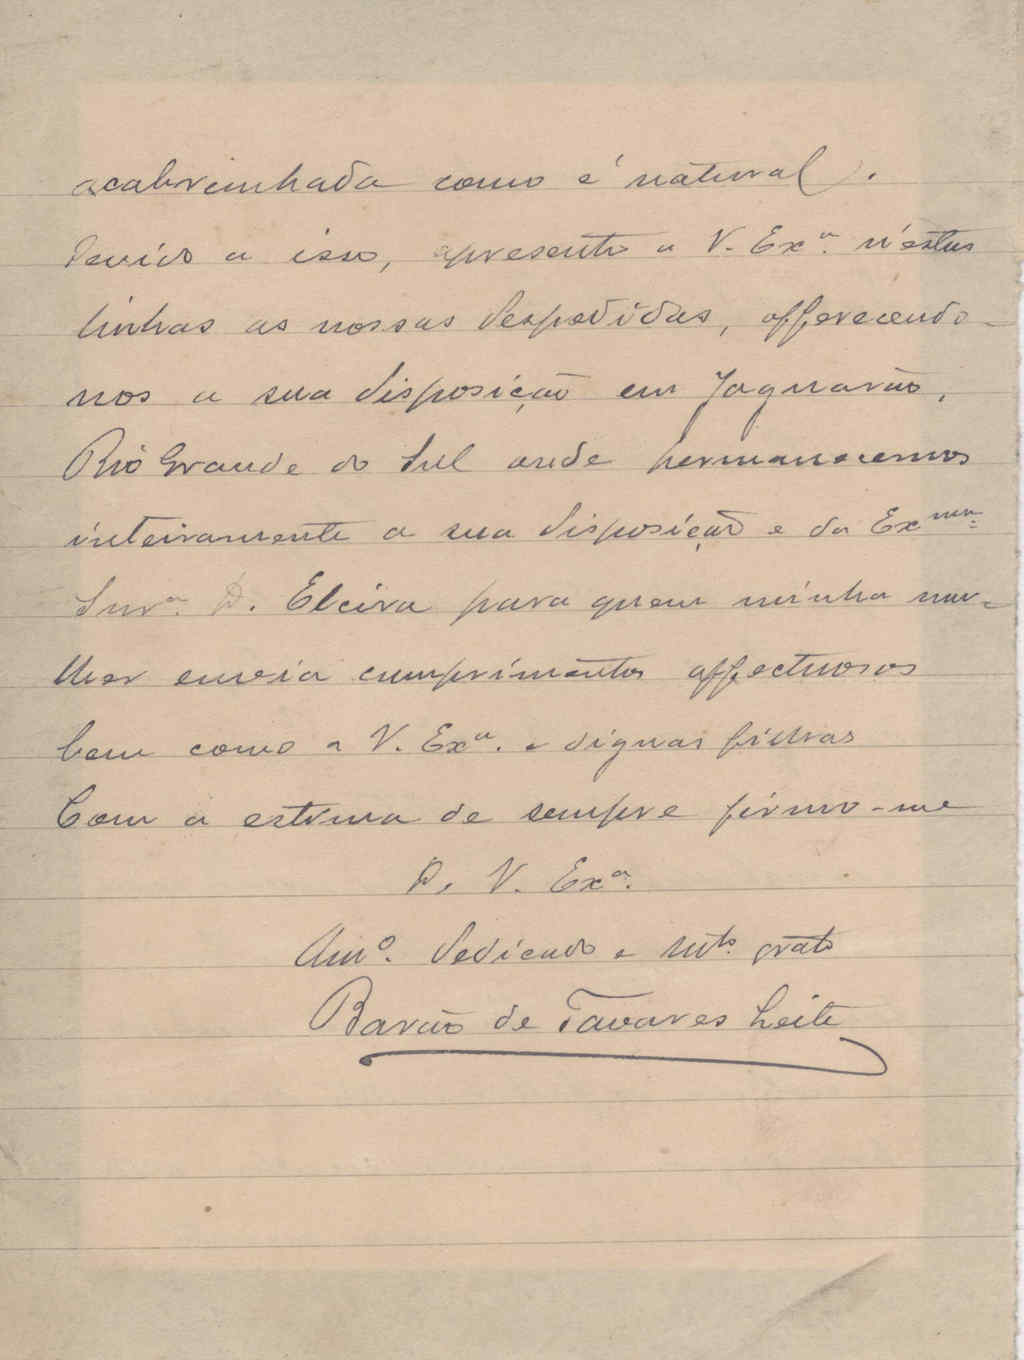 acabrunhada como é natural).
Devido a isso, apresento a V. Exª. n'estas
linhas as nossas despedidas, offerecendo-
nos a sua disposição em Jaguarão,
Rio Grande do Sul onde permanecemos
inteiramente a sua disposição e da Exma.
Snrª. D. Elcira para quem minha mu-
lher envia cumprimentos affectuosos
bem como a V. Exª. e dignas filhas
Com a estima de sempre firmo-me
D. V. Exª.
Amº. dedicado e mto. grato
Barão de Tavares Leite